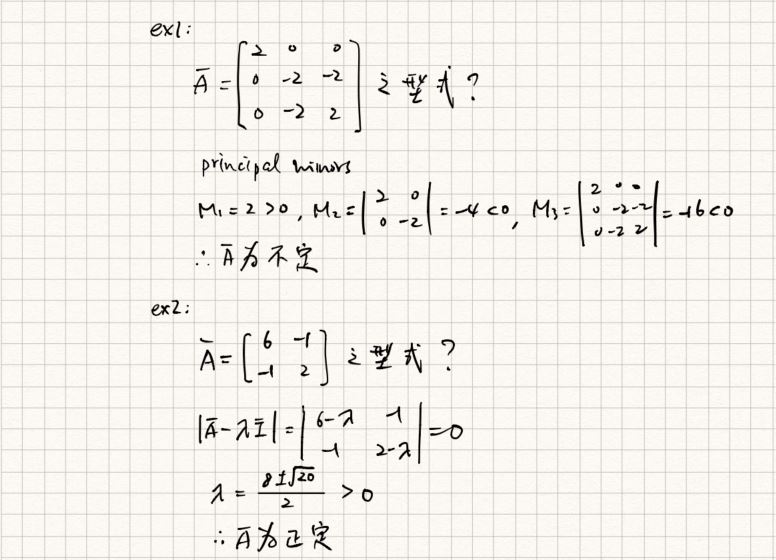 ex1:
Ā = [2 0 0; 0 -2 -2; 0 -2 2] 之型式?
principal minors
M₁ = 2 > 0, M₂ = |2 0; 0 -2| = -4 < 0, M₃ = |2 0 0; 0 -2 -2; 0 -2 2| = -16 < 0
∴ Ā为不定
ex2:
Ā = [6 -1; -1 2] 之型式?
|Ā - λĪ| = |6-λ -1; -1 2-λ| = 0
λ = (8 ± √20)/2 > 0
∴ Ā为正定